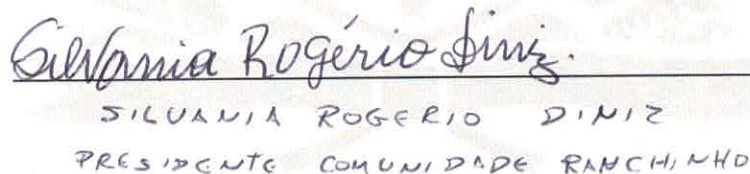 Silvania Rogério Diniz
SILVANIA ROGERIO DINIZ
PRESIDENTE COMUNIDADE RANCHINHO